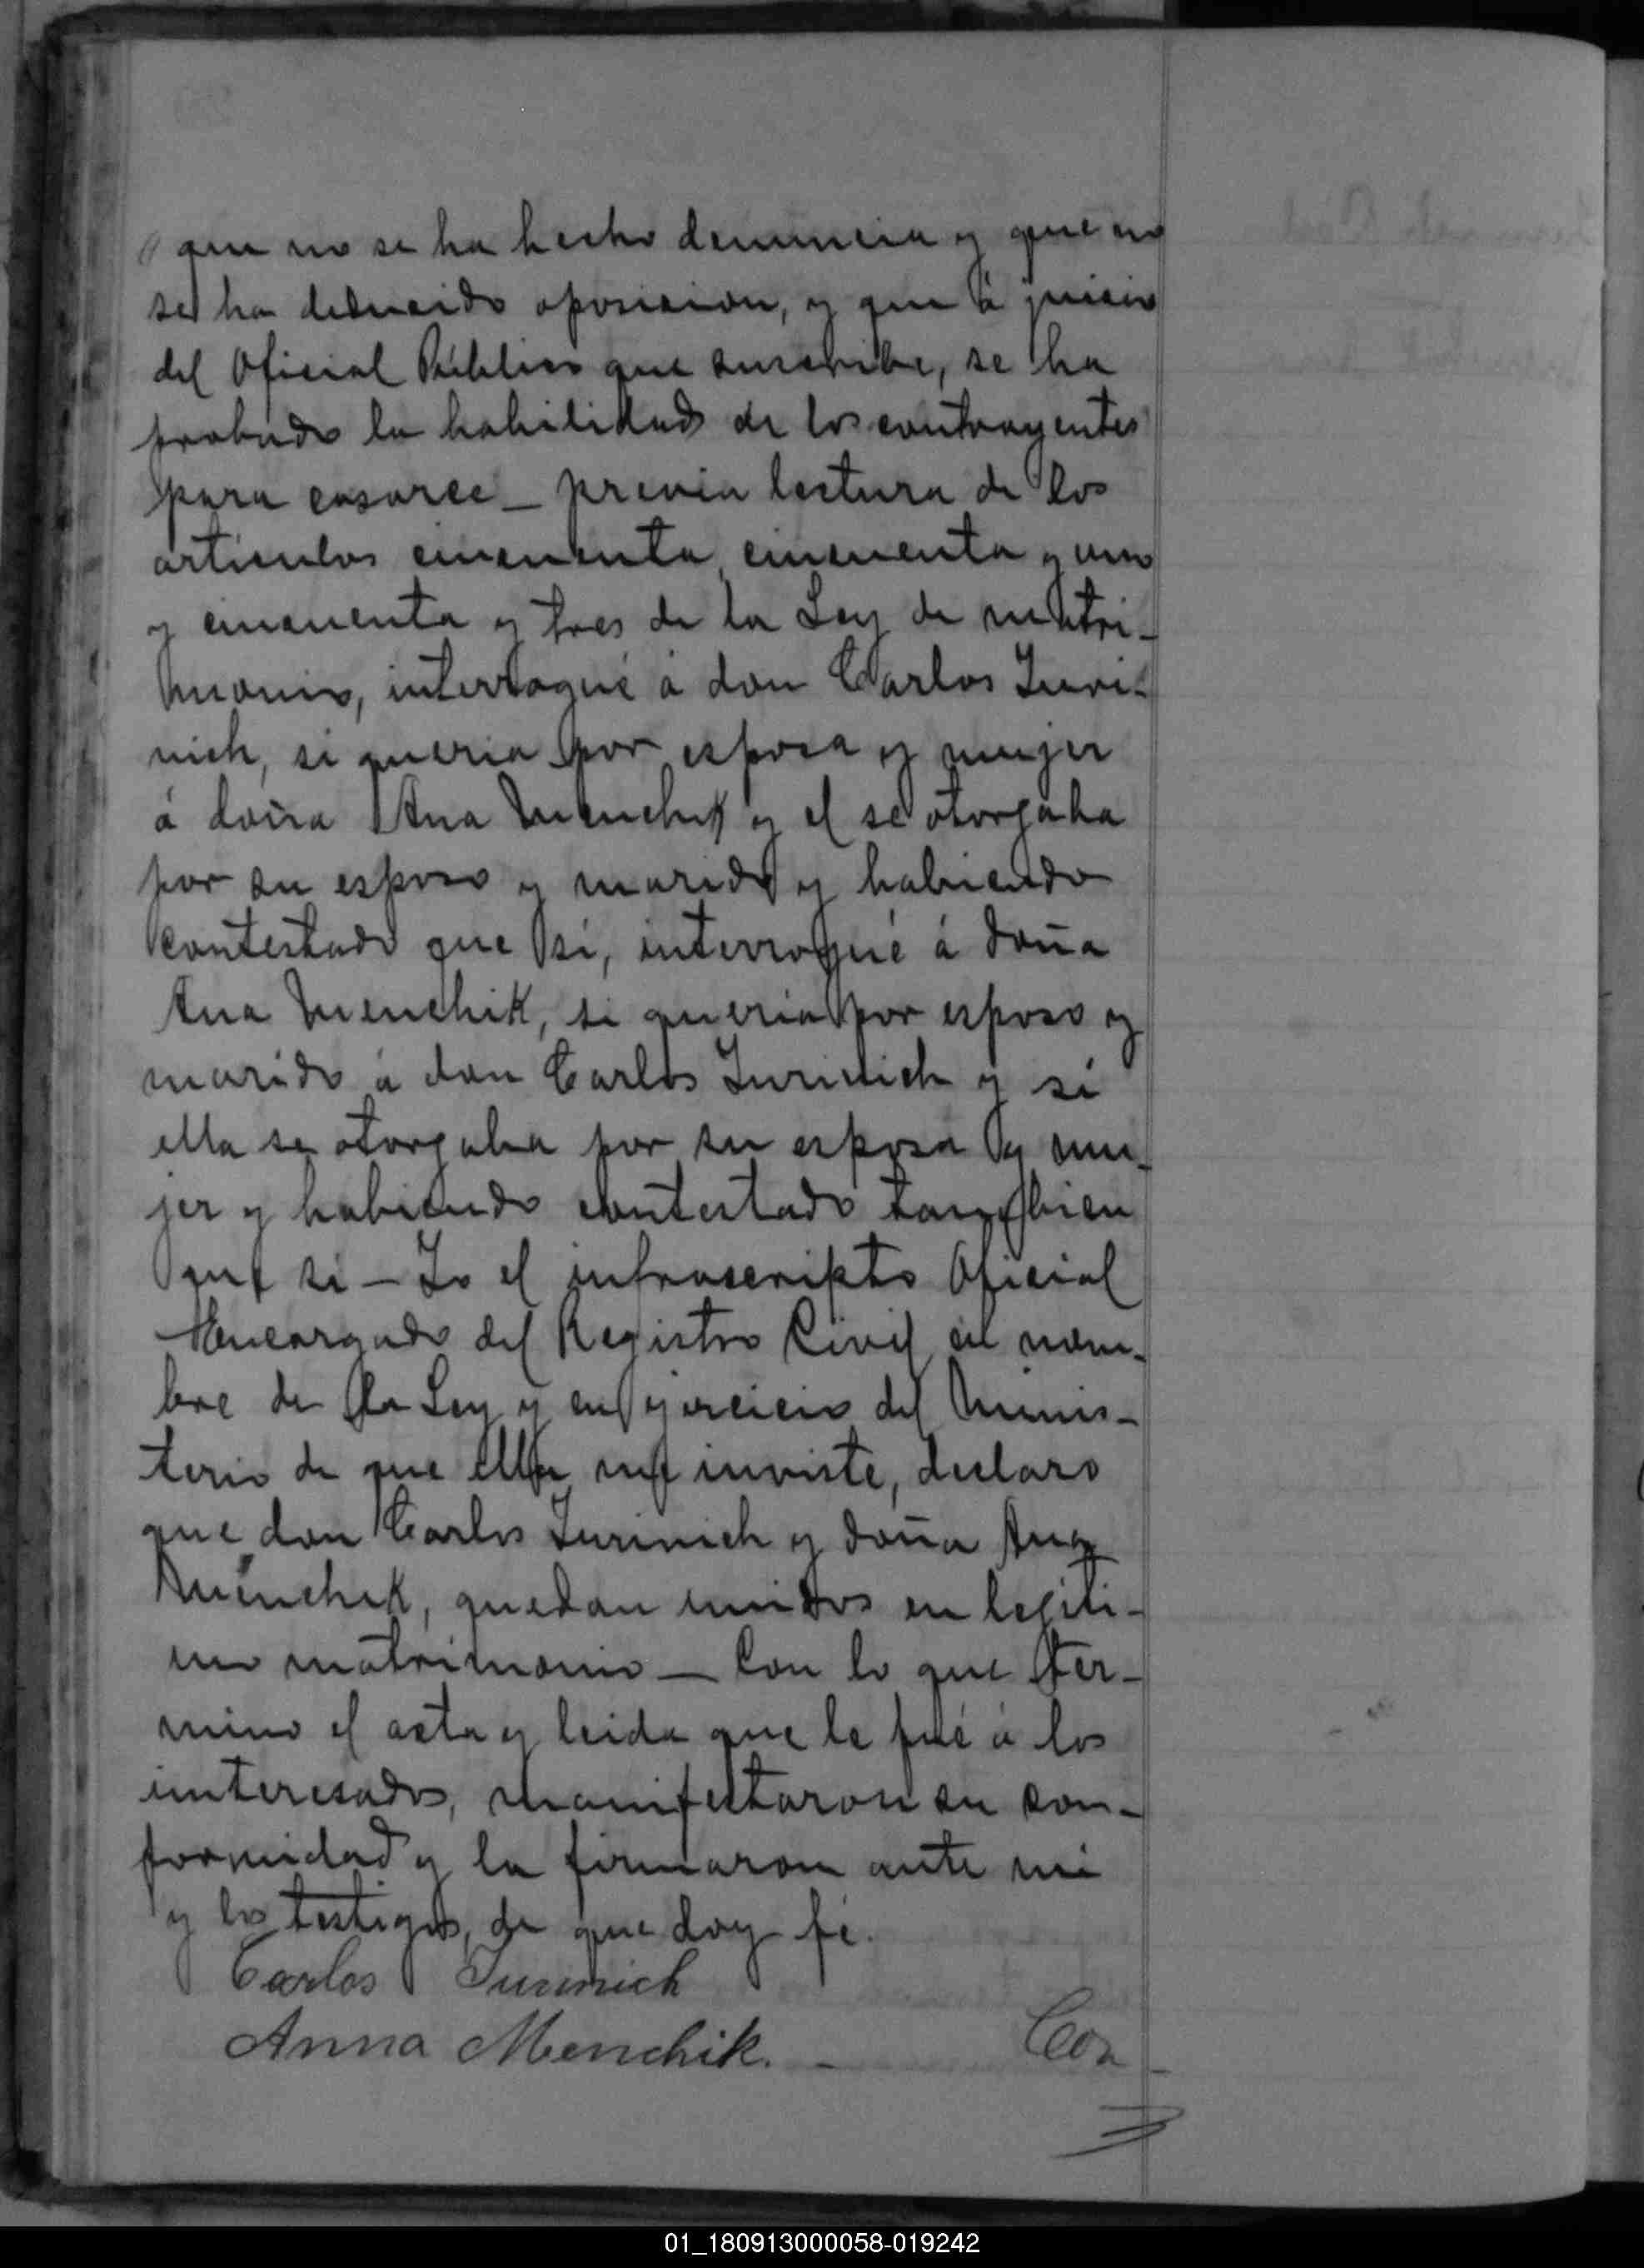 que no se ha hecho denuncia y que no
se ha deducido oposicion, y que á juicio
del Oficial Público que suscribe, se ha
probado la habilidad de los contrayentes
para casarce _ previa lectura de los
articulos cincuenta, cincuenta y uno
y cincuenta y tres de la Ley de matri-
monio, interrogué á don Carlos Iuri-
nich, si queria por esposa y mujer
á doña Ana Menchik y el se otorgaba
por su esposo y marido y habiendo
contestado que sí, interrogué á doña
Ana Menchik, si queria por esposo y
marido á don Carlos Iurinich y si
ella se otorgaba por su esposa y mu-
jer y habiendo contestado tambien
que si — Yo el infrascripto Oficial
Encargado del Registro Civil en nom-
bre de la Ley y en ejercicio del Minis-
terio de que ella me inviste, declaro
que don Carlos Iurinich y doña Ana
Menchik, quedan unidos en legiti-
mo matrimonio — Con lo que ter-
mino el acta y leida que le fué á los
interesados, manifestaron su con-
formidad y la firmaron ante mi
y los testigos, de que doy fé.
Carlos Iurinich
Anna Menchik. Con
01_180913000058-019242